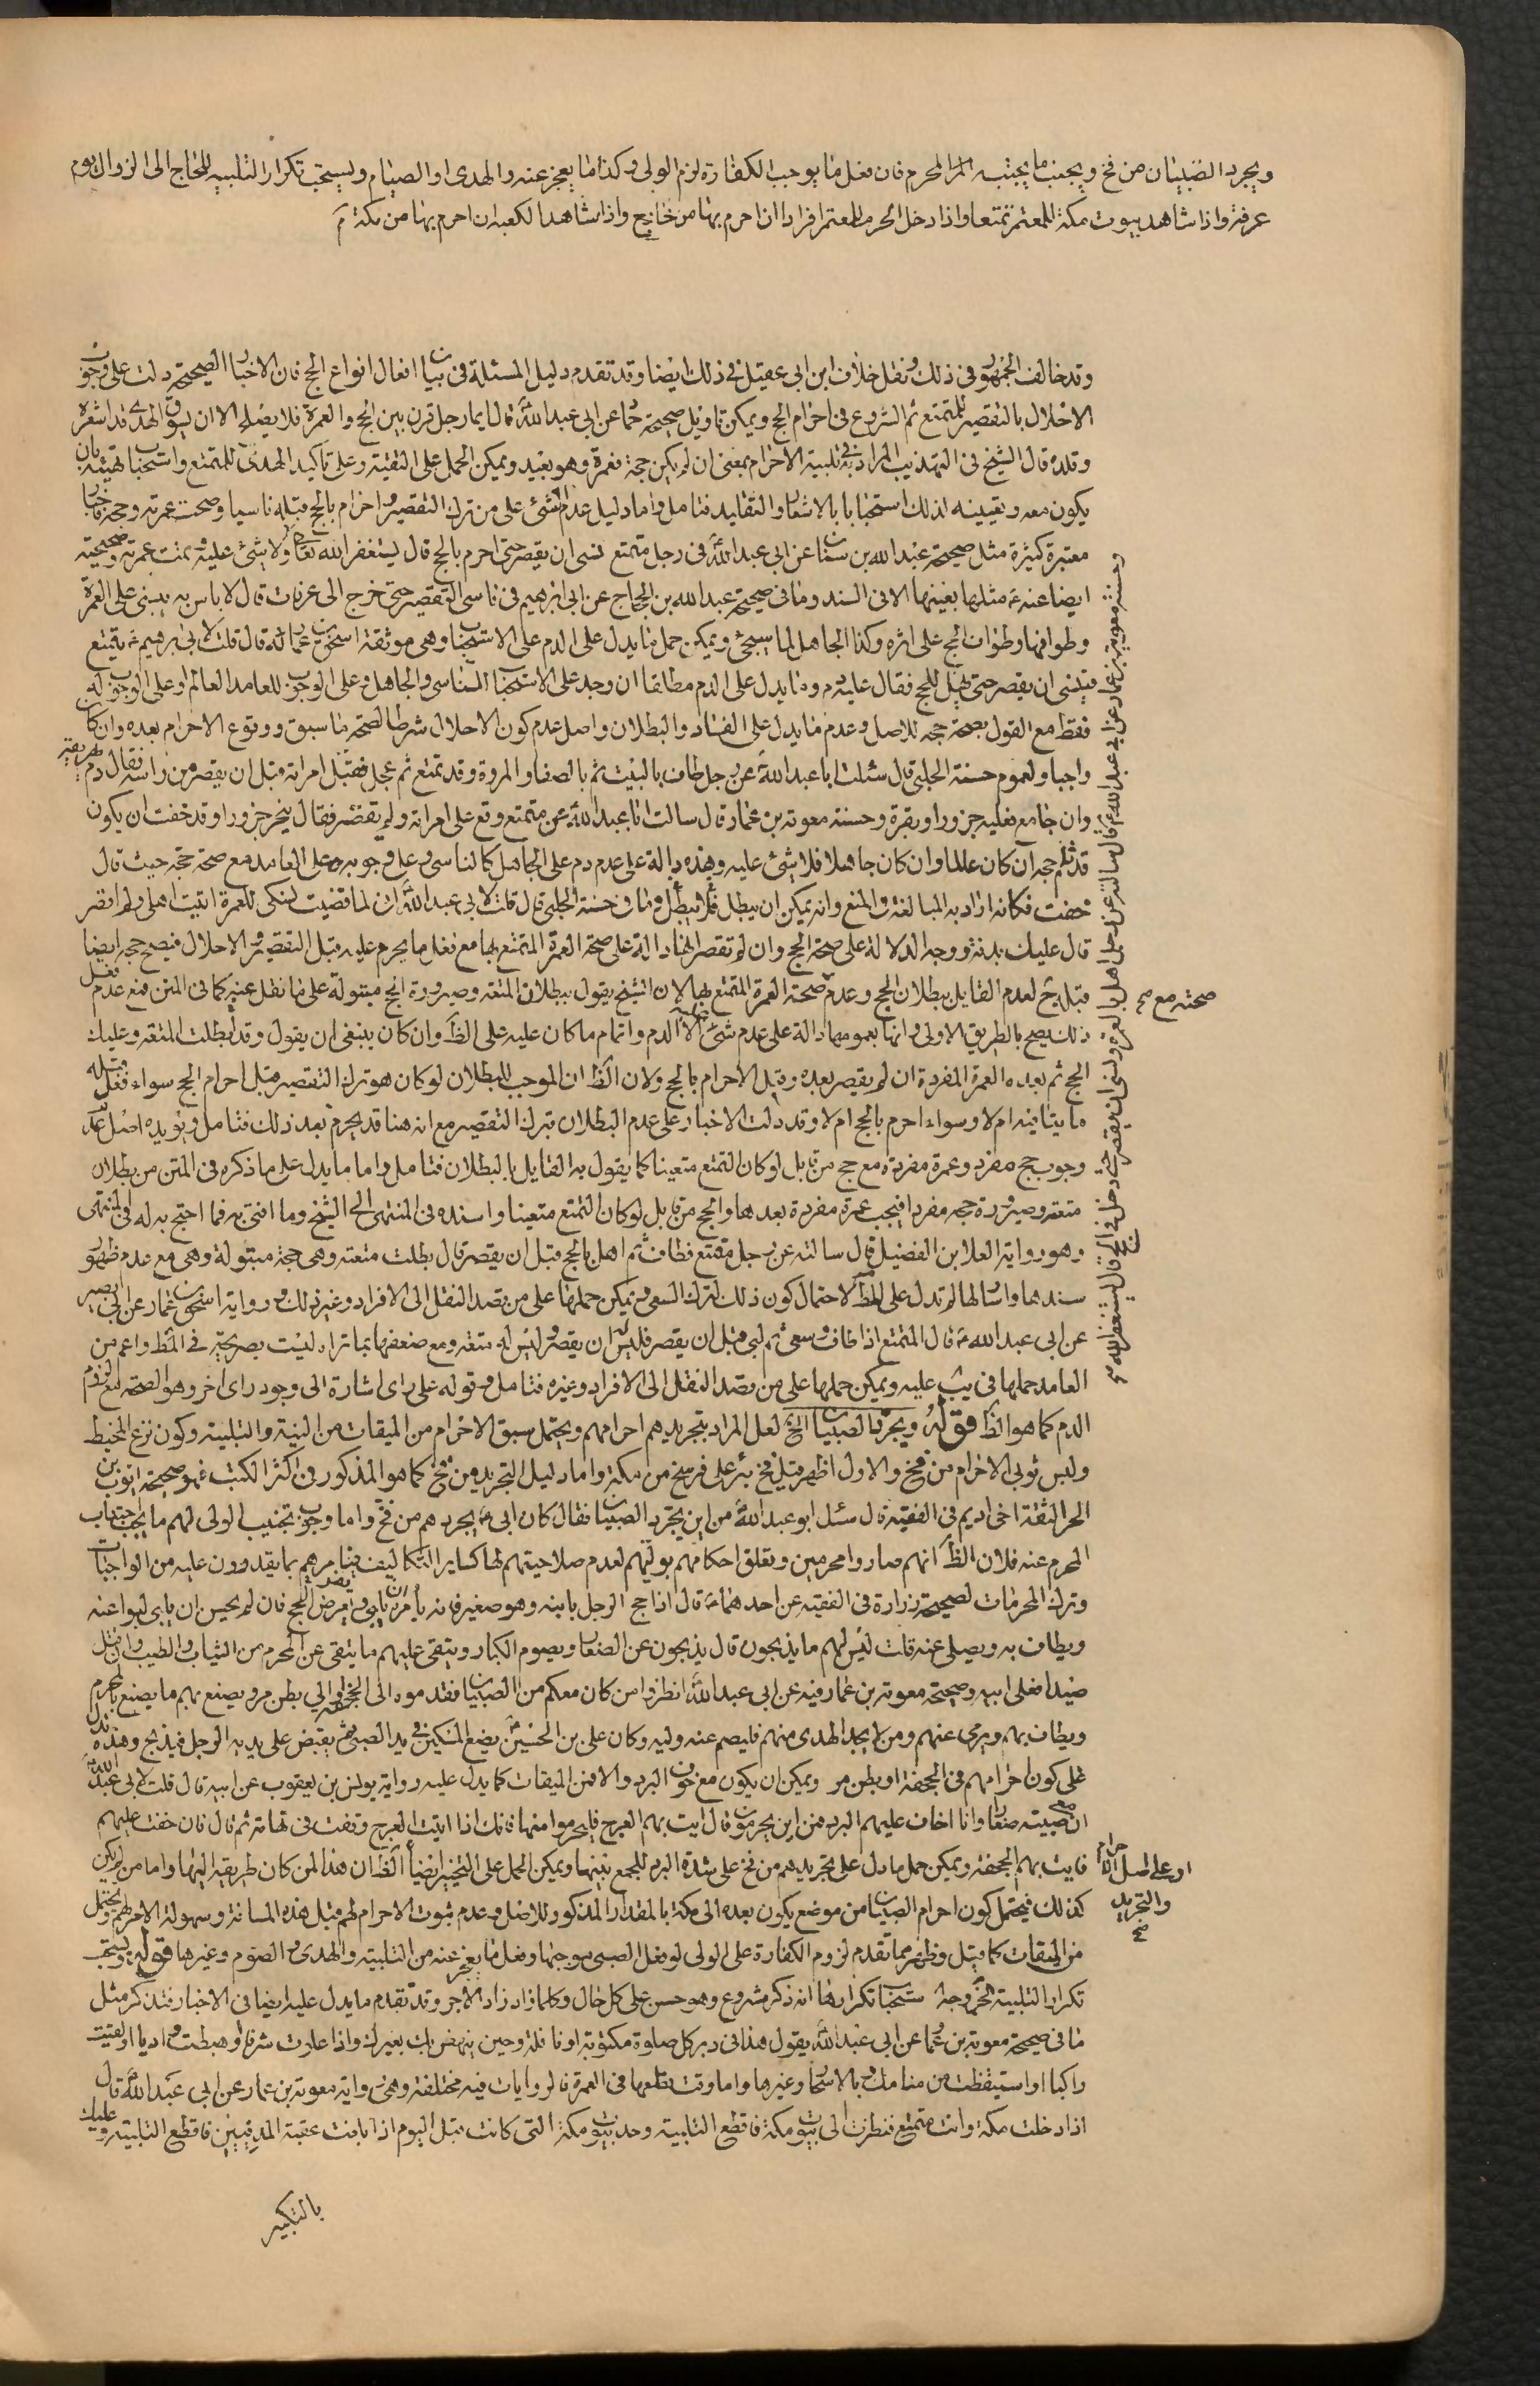 ويجرد الصبيان من فخ ويجنب ما يجتنبه المحرم فان فعل ما يوجب الكفارة لزم الولي وكذا ما يعجز عنه والهدى او الصيام ويستحب تكرار التلبيه للحاج الى الزوال يوم
عرفة واذا شاهد بيوت مكة للمعتمر تمتعا واذا دخل الحرم للمعتمر افرادا ان احرم بها من خارج واذا شاهد الكعبه ان احرم بها من مكة
وقد خالف الجمهور في ذلك ونقل خلاف ابن ابي عقيل في ذلك ايضا وقد تقدم دليل المسئلة في بيان افعال انواع الحج فان الاخبار الصحيحة دلت على وجوب
الاحلال بالتقصير للمتمتع ثم الشروع في احرام الحج ويمكن تاويل صحيحة عن ابي عبد الله قال ايما رجل قرن بين الحج والعمرة فلا يصلح الا ان يسوق الهدى قد اشعره
وقلده قال الشيخ في التهذيب المراد به في تلبية الاحرام بمعنى ان لم يكن حجة فعمرة وهو بعيد ويمكن الحمل على التقية وعلى تاكيد الهدى للمتمتع واستحباب تهيئته بان
يكون معه وتعيينه لذلك استحبابا بالاشعار والتقليد فتامل واما دليل عدم الشئ على من ترك التقصير واحرام بالحج قبله ناسيا وصحت عمرته وحجه فاخبار
معتبرة كثيرة مثل صحيحة عبد الله بن سنان عن ابي عبد الله في رجل متمتع نسى ان يقصر حتى احرم بالحج قال يستغفر الله تعالى ولا شئ عليه وتمت عمرته وصحيحته
ايضا عنه مثلها بعينها الا في السند وما في صحيحة عبد الله بن الحجاج عن ابي ابرهيم في ناسى التقصير حتى خرج الى عرفات قال لا باس به يبنى على العمرة
وطوافها وطواف الحج على اثره وكذا الجاهل لما سيجئ ويمكن حمل ما يدل على الدم على الاستحباب وهى موثقة اسحق بن عمار قال قلت لابي ابرهيم يتمتع
فينسى ان يقصر حتى يهل للحج فقال عليه دم وما يدل على الدم مطلقا ان وجد على الاستحباب للناسى والجاهل وعلى الوجوب للعامد العالم او على الوجوب له
فقط مع القول بصحة حجه للاصل وعدم ما يدل على الفساد والبطلان واصل عدم كون الاحلال شرطا لصحة ما سبق ووقوع الاحرام بعده وان كان
واجبا ولعموم حسنة الحلبي قال سئلت ابا عبد الله عن رجل طاف بالبيت ثم بالصفا والمروة وقد تمتع ثم عجل فقبل امراته قبل ان يقصر من راسه فقال دم يهريقه
وان جامع فعليه جزور او بقرة وحسنة معوية بن عمار قال سالت ابا عبد الله عن متمتع وقع على امراته ولم يقصر فقال ينحر جزورا وقد خفت ان يكون
قد ثلم حجه ان كان عالما وان كان جاهلا فلا شئ عليه وهذه دالة على عدم دم على الجاهل كالناسى وعلى وجوبه على العامد مع صحة حجه حيث قال
خفت فكانه اراد به المبالغة والمنع وانه يمكن ان يبطل فلم يبطل وما في حسنة الحلبي قال قلت لابي عبد الله ان لما قضيت نسكى للعمرة اتيت اهلي ولم اقصر
قال عليك بدنة ووجه الدلالة على صحة الحج وان لم تقصر انها دالة على صحة العمرة المتمتع بها مع فعل ما يحرم عليه قبل التقصير الاحلال فيصح حجه ايضا
قبله لعدم القايل ببطلان الحج وعدم صحة العمرة المتمتع بها لان الشيخ يقول ببطلان المتعه وصيرورة الحج مبتولة على ما نقل عنه كما في المتن فمع عدم فعل
ذلك يصح بالطريق الاولى وانها بعمومها دالة على عدم شئ الا الدم واتمام ما كان عليه على الظ وان كان ينبغى ان يقول وقد ابطلت المتعه وعليك
الحج ثم بعده العمرة المفردة ان لم يقصر بعده وقبل الاحرام بالحج ولان الظ ان الموجب للبطلان لو كان هو ترك التقصير قبل احرام الحج سواء فعل قبله
ما ينافيه ام لا وسواء احرم بالحج ام لا وقد دلت الاخبار على عدم البطلان بترك التقصير مع انه هنا قد يحرم بعد ذلك فتامل ويؤيده اصل عدم
وجوب حج مفرد وعمرة مفردة مع حج من قابل لو كان التمتع متعينا كما يقول به القايل بالبطلان فتامل واما ما يدل على ما ذكره في المتن من بطلان
متعته وصيرورة حجه مفردا فيجب عمرة مفردة بعدها والحج من قابل لو كان التمتع متعينا واسنده في المنتهى الى الشيخ وما افتى به فما احتج به له في المنتهى
وهو رواية العلا بن الفضيل قال سالته عن رجل متمتع فطاف ثم اهل بالحج قبل ان يقصر قال بطلت متعته وهى حجة مبتولة وهى مع عدم ظهور
سندها وامثالها لم تدل على المط لاحتمال كون ذلك لترك السعى ويمكن حملها على من قصد النقل الى الافراد وغير ذلك ورواية اسحق بن عمار عن ابي بصير
عن ابي عبد الله قال المتمتع اذا طاف وسعى ثم لبى قبل ان يقصر فليس له ان يقصر وليس له متعة ومع ضعفها بما تراه ليست بصريحة في المط واعم من
العامد حملها في يب عليه ويمكن حملها على من قصد النقل الى الافراد وغيره فتامل وقوله على راى اشارة الى وجود راى اخر وهو الصحة مع لزوم
الدم كما هو الظ قوله ويجرد الصبيان الخ لعل المراد بتجريدهم احرامهم ويحتمل سبق الاحرام من الميقات من النية والتلبية وكون نزع المخيط
ولبس ثوبى الاحرام من فخ والاول اظهر قيل فخ بئر على فرسخ من مكة واما دليل التجريد من فخ كما هو المذكور في اكثر الكتب فهو صحيحة ايوب بن
الحر الثقة اخى اديم في الفقيه قال سئل ابو عبد الله من اين يجرد الصبيان فقال كان ابى يجردهم من فخ واما وجوب تجنيب الولى لهم ما يجب اجتناب
المحرم عنه فلان الظ انهم صاروا محرمين وتعلق احكامهم بوليهم لعدم صلاحيتهم لها كساير التكاليف فيامرهم بما يقدرون عليه من الواجبات
وترك المحرمات لصحيحة زرارة في الفقيه عن احدهما قال اذا حج الرجل بابنه وهو صغير فانه يامره ان يلبى ويفرض الحج فان لم يحسن ان يلبى لبوا عنه
ويطاف به ويصلى عنه قلت ليس لهم ما يذبحون قال يذبحون عن الصغار ويصوم الكبار ويتقى عليهم ما يتقى عن المحرم من الثياب والطيب وان قتل
صيدا فعلى ابيه وصحيحة معوية بن عمار فيه عن ابي عبد الله انظروا من كان معكم من الصبيان فقدموه الى الجحفة او الى بطن مر ويصنع بهم ما يصنع بالمحرم
ويطاف بهم ويرمى عنهم ومن لا يجد الهدى منهم فليصم عنه وليه وكان على بن الحسين يضع السكين في يد الصبى ثم يقبض على يديه الرجل فيذبح وهذه تدل
على كون احرامهم في الجحفة او بطن مر ويمكن ان يكون مع خوف البرد والا فمن الميقات كما يدل عليه رواية يونس بن يعقوب عن ابيه قال قلت لابي عبد الله
ان معى صبية صغارا وانا اخاف عليهم البرد فمن اين يحرمون قال ايت بهم العرج فليحرموا منها فانك اذا اتيت العرج وقفت في تهامة ثم قال فان خفت عليهم
فايت بهم الجحفة ويمكن حمل ما دل على تجريدهم من فخ على شدة البرد للجمع بينهما ويمكن الحمل على التخيير ايضا الظ ان هذا لمن كان طريقه اليها واما من لم يكن
كذلك فيحتمل كون احرام الصبيان من موضع يكون بعده الى مكة بالمقدار المذكور وللاصل وعدم ثبوت الاحرام لهم قبل هذه المسافة وسهولة الامر لهم ويحتمل
من الميقات كما قيل وظهر مما تقدم لزوم الكفارة على الولى لو فعل الصبى موجبها وفعل ما يعجز عنه من التلبية والهدى والصوم وغيرها قوله ويستحب
تكرار التلبية الخ وجه استحباب تكرارها انه ذكر مشروع وهو حسن على كل حال وكلما زاد زاد الاجر وقد تقدم ما يدل عليه ايضا في الاخبار فتذكر مثل
ما في صحيحة معوية بن عمار عن ابي عبد الله يقول هذا في دبر كل صلوة مكتوبة او نافلة وحين ينهض بك بعيرك واذا علوت شرفا او هبطت واديا او لقيت
راكبا او استيقظت من منامك وبالاسحار وغيرها واما وقت قطعها في العمرة فالروايات فيه مختلفة وهى رواية معوية بن عمار عن ابي عبد الله قال
اذا دخلت مكة وانت متمتع فنظرت الى بيوت مكة فاقطع التلبية وحد بيوت مكة التى كانت قبل اليوم اذا بلغت عقبة المدنيين فاقطع التلبية وعليك
بالتكبير
ومثله معوية بن عمار عن ابي عبد الله قال سالته عن رجل اهل بالعمرة ونسى ان يقصر حتى دخل في الحج قال يستغفر الله
صحته مع
او على اصل الاحرام
والتجريد